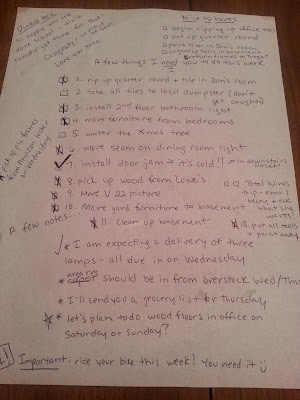 Dickie Bear
So happy you are
home
I
Love you
Nice to haves
□ begin ripping up office tile
□ put up quarter round
□ paint tile in Dori's room
□ organize tools in basement
□ return frames to Target
A few things I need you to do this week
1. rip up quarter round + tile in Dori's room
2. take all tiles to local dumpster (don't get caught)
3. install 2nd floor bathroom light
4. move furniture from bedrooms
5. water the Xmas tree
6. move seam on dining room light
7. install door jam → it's cold!! → in downstairs closet!
8. pick up wood from Lowe's
9. Move V.22 picture
10. Move yard furniture to basement
11. Clean up basement
□ 12. Total Wines trip - email Meng + ask what she wants
13. put all tools + paint away
* pick up pic frames from Amazon locker on Wednesday
A few notes...
* I am expecting a delivery of three
lamps - all due in on Wednesday
* area rug should be in from overstock Wed/Thu
* I'll send you a grocery list for Thursday
* let's plan to do wood floors in office on
Saturday or Sunday?
Important: ride your bike this week! You need it